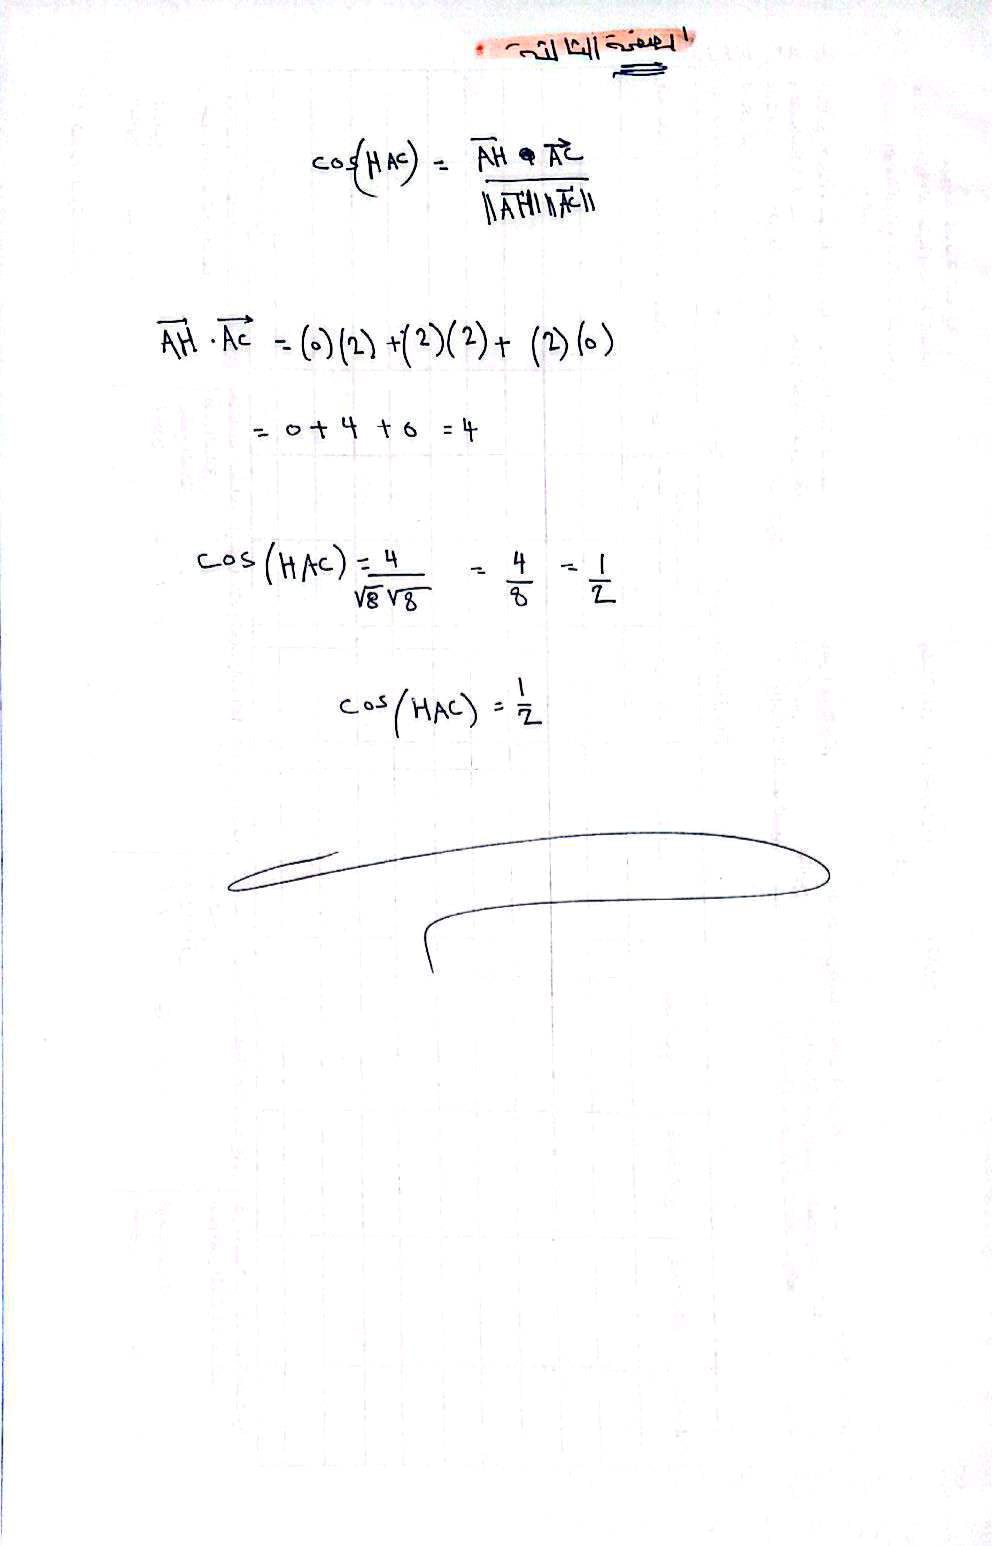 الصفحة الثالثة
cos(HAC) = AH • AC / ||AH|| ||AC||
AH · AC = (0)(2) + (2)(2) + (2)(0)
= 0 + 4 + 0 = 4
cos(HAC) = 4 / √8 √8 = 4/8 = 1/2
cos(HAC) = 1/2